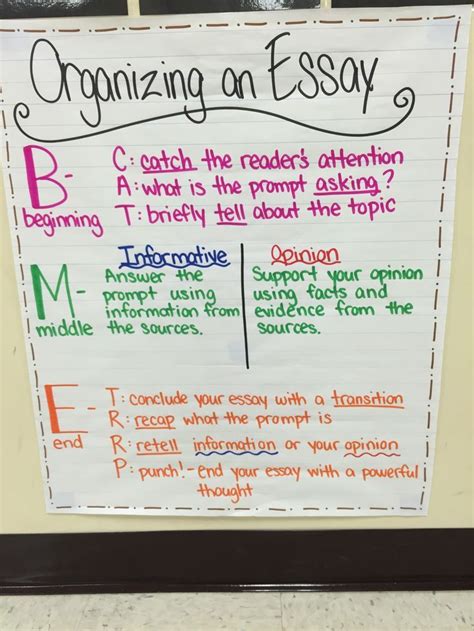 Organizing an Essay
B- C: catch the reader's attention
A: what is the prompt asking?
beginning T: briefly tell about the topic
Informative Opinion
M- Answer the
prompt using
information from
middle the sources.
Support your opinion
using facts and
evidence from the
sources.
E - T: conclude your essay with a transition
R: recap what the prompt is
end R: retell information or your opinion
P: punch!- end your essay with a powerful
thought